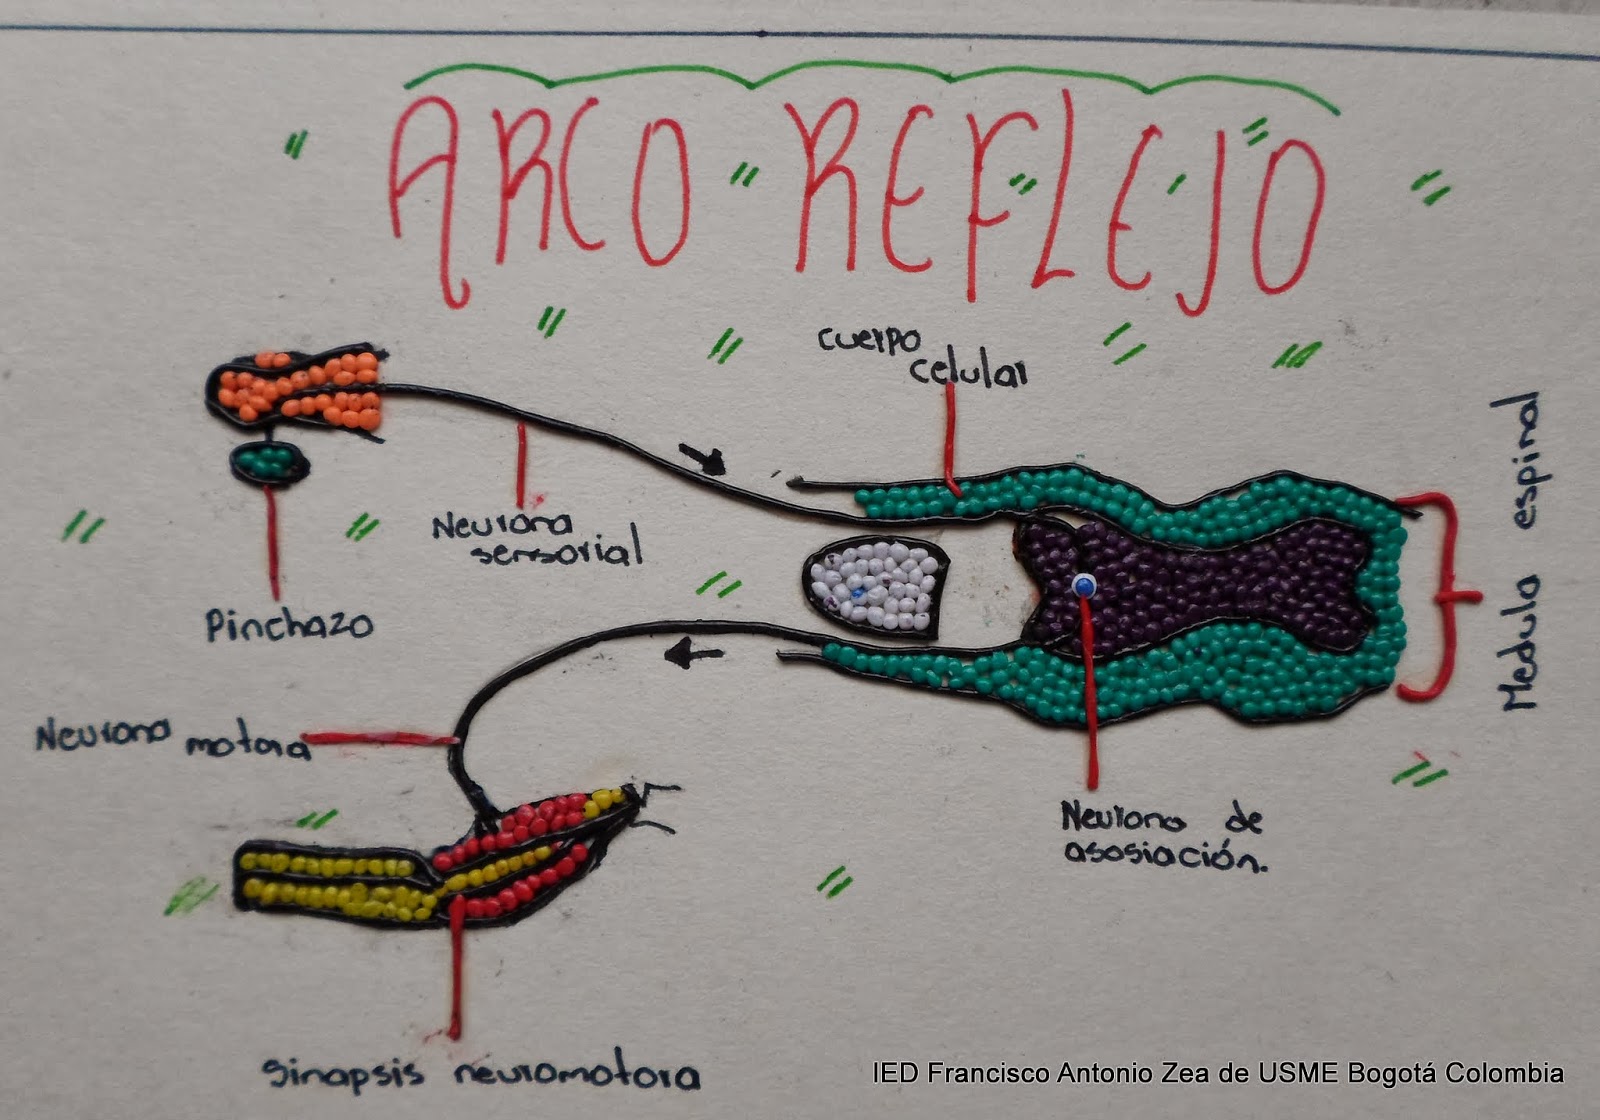 ARCO REFLEJO
cuerpo
celular
Neurona
sensorial
Pinchazo
Medula espinal
Neurona motora
Neurona de
asosiación.
sinapsis neuromotora
IED Francisco Antonio Zea de USME Bogotá Colombia